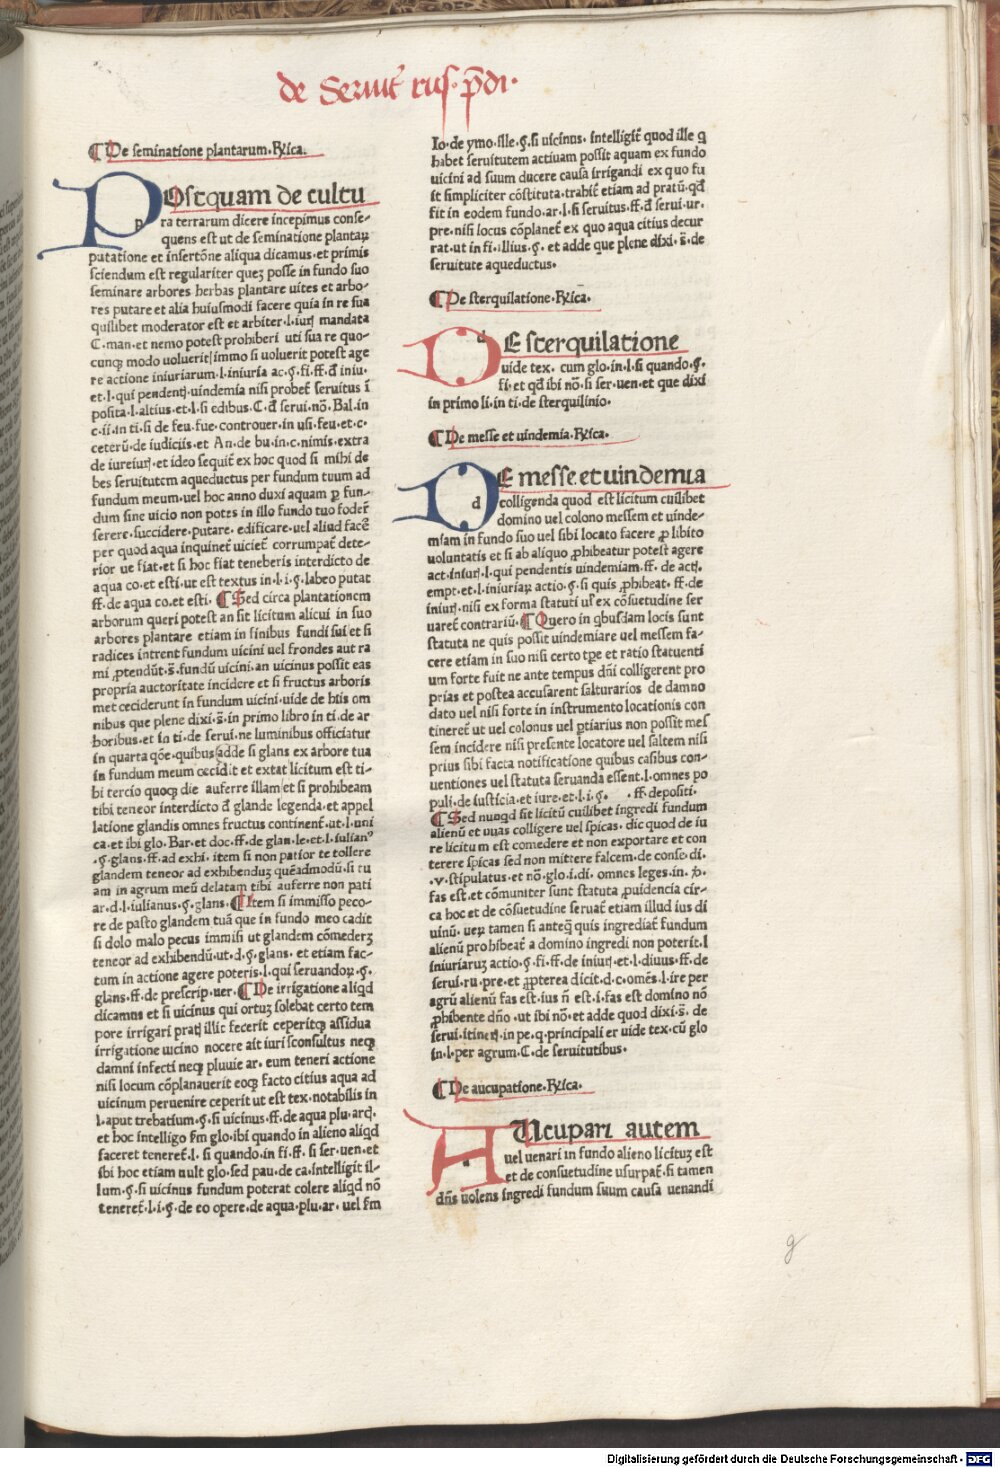 de Seruit̄ rus. p̄di.
¶ De seminatione plantarum. Rx̄ica.
POstquam de cultu
ra terrarum dicere incepimus conse-
quens est ut de seminatione plantaꝝ
putatione et insertōne aliqua dicamus. et primis
sciendum est regulariter quēꝫ posse in fundo suo
seminare arbores herbas plantare uites et arbo-
res putare et alia huiusmodi facere quia in re sua
quilibet moderator est et arbiter. l. iurꝭ mandata
C. man. et nemo potest prohiberi uti sua re quo-
cunqꝫ modo uoluerit immo si uoluerit potest age
re actione iniuriarum. l. iniuria ac. §. fi. ff. đ iniu.
et. l. qui pendentꝭ. uindemia nisi probet̄ seruitus ī
posita. l. altius. et. l. si edibus. C. đ serui. nō. Bal. in
c. ii. in ti. si de feu. fue. controuer. in usi. feu. et. c.
ceterū. de iudiciis. et An. de bu. in. c. nimis. extra
de iureiurꝭ. et ideo sequit̄ ex hoc quod si mihi de
bes seruitutem aqueductus per fundum tuum ad
fundum meum. uel hoc anno duxi aquam ꝑ fun-
dum sine uicio non potes in illo fundo tuo foder̄
serere. succidere. putare. edificare. uel aliud facē
per quod aqua inquinet̄ uiciet̄ corrumpat̄ dete-
rior ue fiat. et si hoc fiat teneberis interdicto de
aqua co. et esti. ut est textus in. l. i. §. labeo putat
ff. de aqua co. et esti. ¶ Sed circa plantationem
arborum queri potest an sit licitum alicui in suo
arbores plantare etiam in finibus fundi sui et si
radices intrent fundum uicini uel frondes aut ra
mi ꝓtendūt. s̄. fundū uicini. an uicinus possit eas
propria auctoritate incidere et si fructus arboris
met ceciderunt in fundum uicini. uide de hiis om
nibus que plene dixi. s̄. in primo libro in ti. de ar
boribus. et in ti. de serui. ne luminibus officiatur
in quarta qōe. quibus adde si glans ex arbore tua
in fundum meum cecidit et extat licitum est ti-
bi tercio quoqꝫ die auferre illam et si prohibeam
tibi teneor interdicto đ glande legenda. et appel
latione glandis omnes fructus continent̄. ut. l. uni
ca. et ibi glo. Bar. et doc. ff. de glan. le. et. l. iulianꝰ
. §. glans. ff. ad exhi. item si non patior te tollere
glandem teneor ad exhibenduꝫ quēadmodū. si tu
am in agrum meū delatam tibi auferre non pati
ar. d. l. iulianus. §. glans. ¶ Item si immisso peco-
re de pasto glandem tuā que in fundo meo cadit
si dolo malo pecus immisi ut glandem cōmederꝫ
teneor ad exhibendū. ut. d. §. glans. et etiam fac-
tum in actione agere poteris. l. qui seruandoꝝ. §.
glans. ff. de prescrip. uer. ¶ De irrigatione aliqđ
dicamus et si uicinus qui ortuꝫ solebat certo tem
pore irrigari pratꝭ illic fecerit ceperitqꝫ assidua
irrigatione uicino nocere ait iuri sconsultus neqꝫ
damni infecti neqꝫ pluuie ar. eum teneri actione
nisi locum cōplanauerit eoqꝫ facto citius aqua ad
uicinum peruenire ceperit ut est tex. notabilis in
l. aput trebatium. §. si uicinus. ff. de aqua plu. arꝭ.
et hoc intelligo s̄m glo. ibi quando in alieno aliqđ
faceret teneret̄. l. si quando. in fi. ff. si ser. uen. et
ibi hoc etiam uult glo. sed pau. de ca. intelligit il-
lum. §. si uicinus fundum poterat colere aliqđ nō
teneret̄. l. i. §. de eo opere. de aqua. plu. ar. uel s̄m
Io. de ymo. ille. §. si uicinus. intelligit̄ quod ille q̄
habet seruitutem actiuam possit aquam ex fundo
uicini ad suum ducere causa irrigandi ex quo fu
it simpliciter cōstituta. trahit̄ etiam ad pratū. qđ
fit in eodem fundo. ar. l. si seruitus. ff. đ serui. ur.
pre. nisi locus cōplanet̄ ex quo aqua citius decur
rat. ut in fi. illius. §. et adde que plene dixi. s̄. de
seruitute aqueductus.
¶ De sterquilatione. Rx̄icā.
DE sterquilatione
uide tex. cum glo. in. l. si quando. §.
fi. et qđ ibi nō. si ser. uen. et que dixi
in primo li. in ti. de sterquilinio.
¶ De messe et uindemia. Rx̄ica.
DE messe et uindemia
colligenda quod est licitum cuilibet
domino uel colono messem et uinde-
miam in fundo suo uel sibi locato facere ꝓ libito
uoluntatis et si ab aliquo ꝓhibeatur potest agere
act. iniurꝭ. l. qui pendentis uindemiam. ff. de actꝭ.
empt. et. l. iniuriaꝝ actio. §. si quis ꝓhibeat. ff. de
iniurꝭ. nisi ex forma statuti ul̄ ex cōsuetudine ser
uaret̄ contrariū. ¶ Quero in qbusdam locis sunt
statuta ne quis possit uindemiare uel messem fa-
cere etiam in suo nisi certo tpe et ratio statuenti
um forte fuit ne ante tempus dn̄i colligerent pro
prias et postea accusarent salturarios de damno
dato uel nisi forte in instrumento locationis con
tineret̄ ut uel colonus uel ꝑtiarius non possit mes
sem incidere nisi presente locatore uel saltem nisi
prius sibi facta notificatione quibus casibus con-
uentiones uel statuta seruanda essent. l. omnes po
puli. de iusticia. et iure. et. l. i. §. . ff. depositi.
¶ Sed nunqđ sit licitū cuilibet ingredi fundum
alienū et uuas colligere uel spicas. dic quod de iu
re licitum est comedere et non exportare et con
terere spicas sed non mittere falcem. de conse. di.
. v. stipulatus. et nō. glo. i. di. omnes leges. in. ꝟ.
fas est. et cōmuniter sunt statuta ꝓuidencia cir-
ca hoc et de cōsuetudine seruat̄ etiam illud ius di
uinū. ueꝝ tamen si anteq̄ quis ingrediat̄ fundum
alienū prohibeat̄ a domino ingredi non poterit. l
iniuriaruꝫ actio. §. fi. ff. de iniurꝭ. et. l. diuus. ff. de
serui. ru. pre. et ꝓpterea dicit. d. c. omēs. l. ire per
agrū alienū fas est. ius n̄ est. i. fas est domino nō
ꝓhibente dn̄o. ut ibi nō. et adde quod dixi. s̄. de
serui. itinerꝭ. in pe. q. principali er uide tex. cū glo
in. l. per agrum. C. de seruitutibus.
¶ De aucupatione. Rx̄ica.
AUcupari autem
uel uenari in fundo alieno licituꝫ est
et de consuetudine usurpat̄. si tamen
dn̄s uolens ingredi fundum suum causa uenandi
g
Digitalisierung gefördert durch die Deutsche Forschungsgemeinschaft - DFG